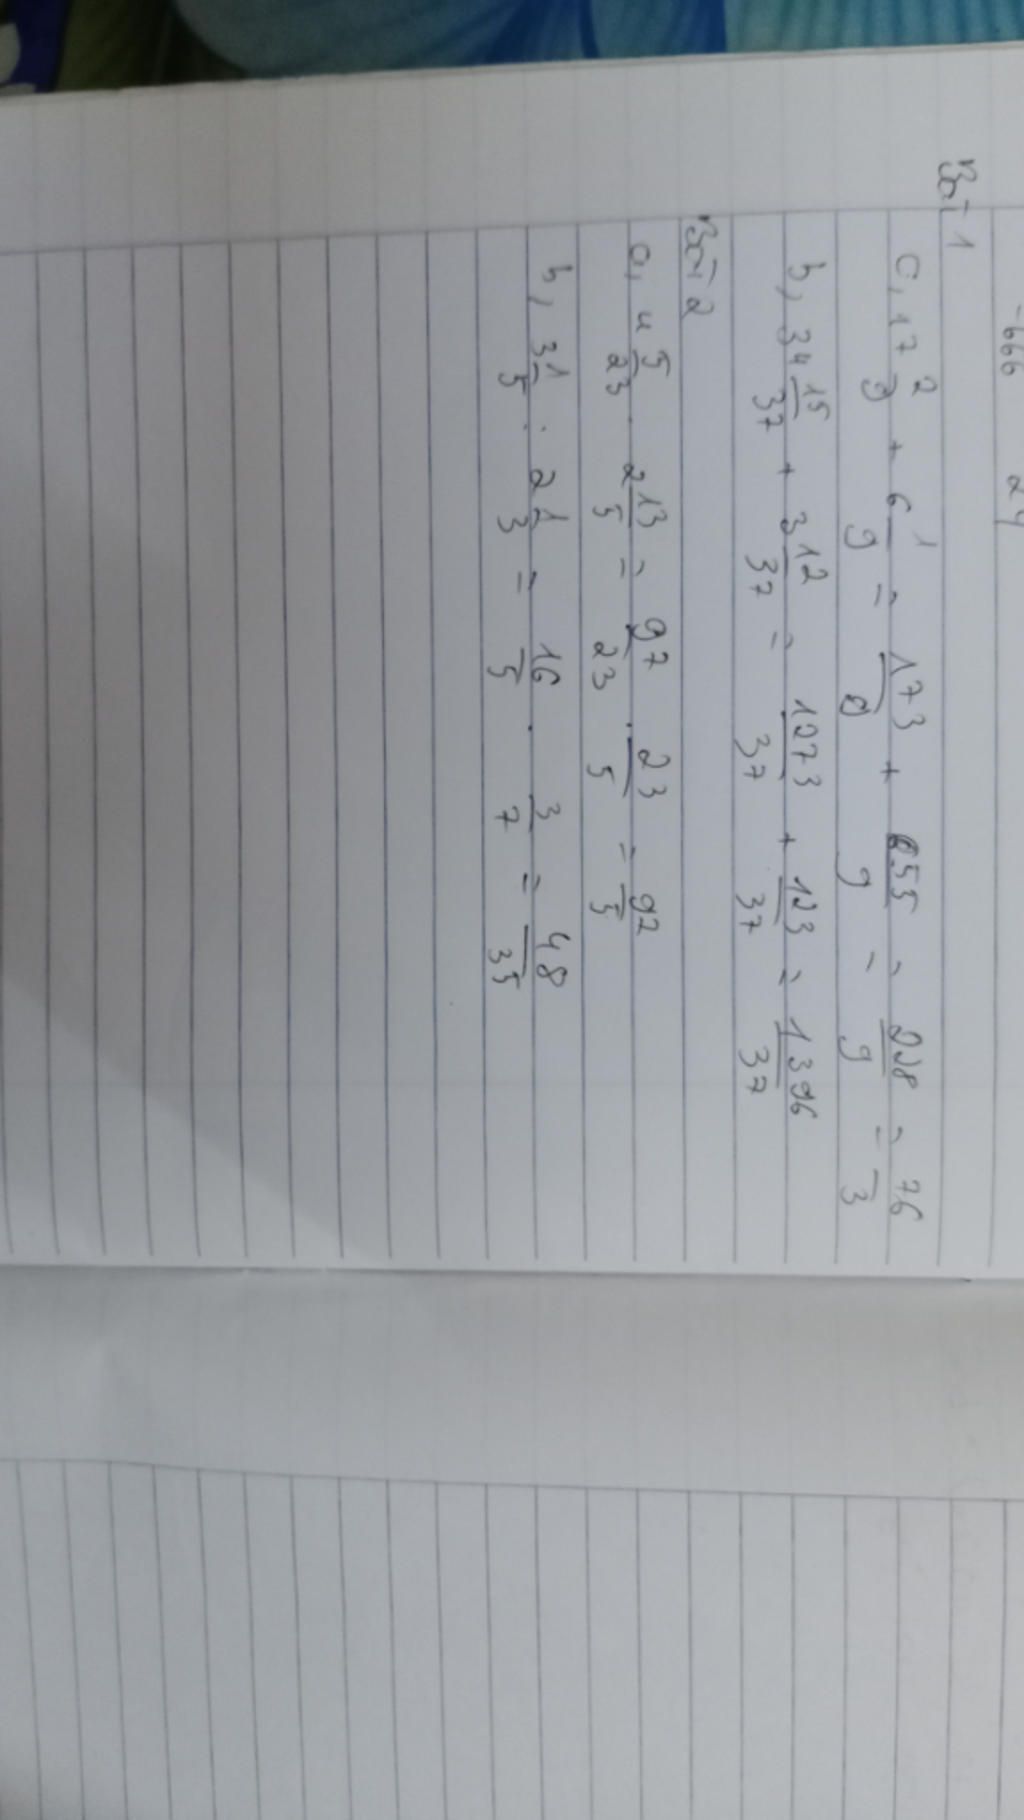 -666 24
Bài 1
a, 17 2/9 + 6 1/9 = 173/9 + 55/9 = 228/9 = 76/3
b, 34 15/37 + 3 12/37 = 1273/37 + 123/37 = 1396/37
Bài 2
a, 4 5/23 . 2 13/5 = 97/23 . 23/5 = 92/5
b, 3 1/5 : 2 1/3 = 16/5 . 3/7 = 48/35